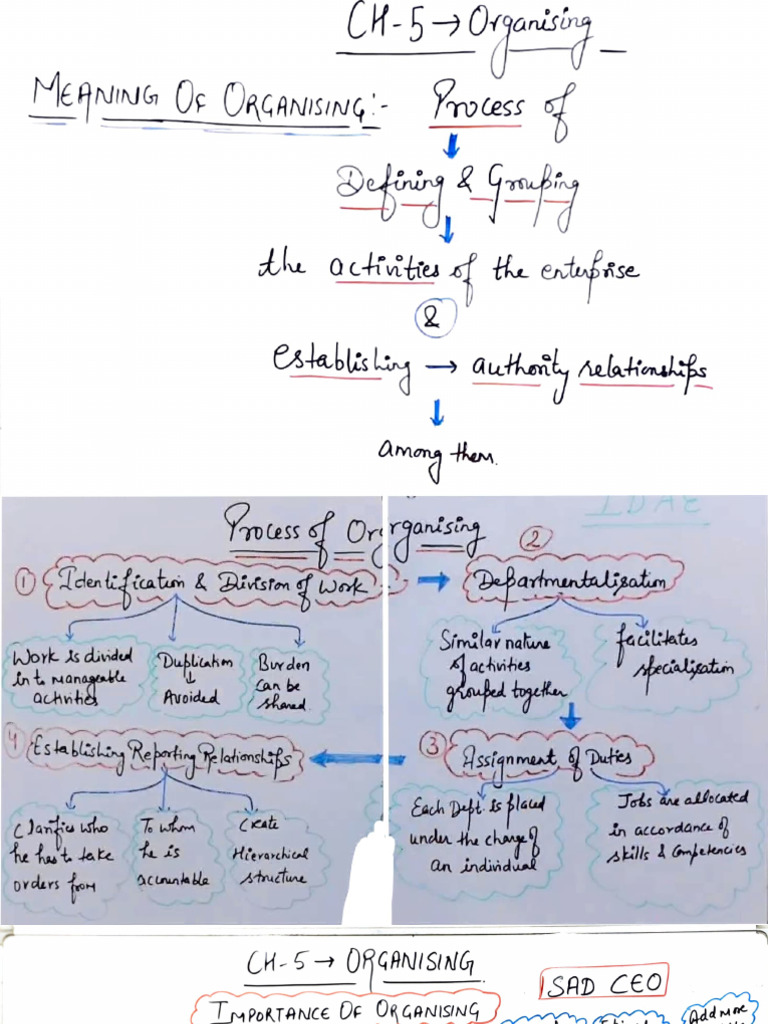 CH-5 → Organising
MEANING OF ORGANISING:- Process of
Defining & Grouping
the activities of the enterprise
&
Establishing → authority relationships
among them.
IDAE
Process of Or rganising
① Identification & Division of Work
② Departmentalisation
Work is divided
into manageable
activities
Duplication
↓
Avoided
Burden
can be
shared.
Similar nature
of activities
grouped together
facilitates
specialisation
④ Establishing Reporting Relationships
③ Assignment of Duties
Clarifies who
he has to take
orders from
To whom
he is
accountable
Create
Hierarchical
structure
Each Dept. is placed
under the charge of
an individual
Jobs are allocated
in accordance of
skills & Competencies
CH-5 → ORGANISING
SAD CEO
IMPORTANCE OF ORGANISING
Add more